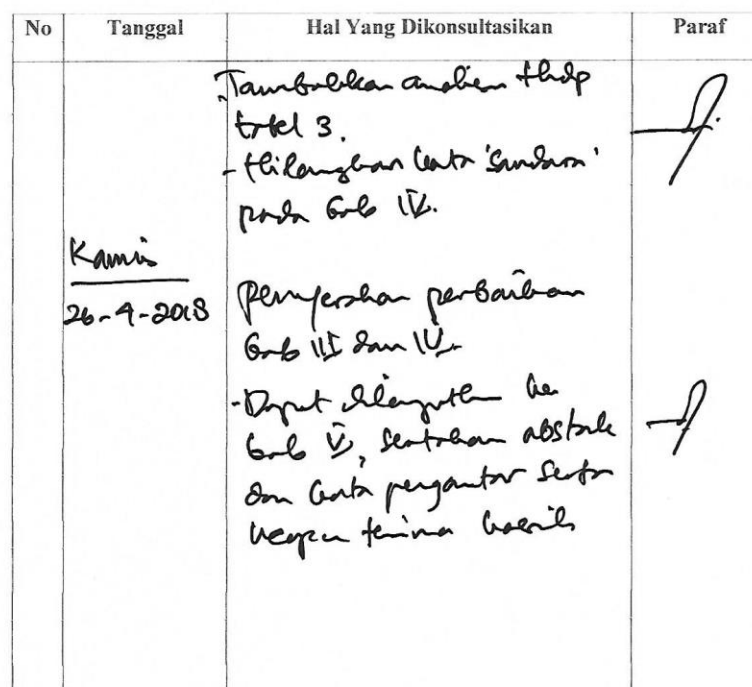 No Tanggal Hal Yang Dikonsultasikan Paraf
- Tambahkan analisa thdp
tabel 3.
- Hilangkan kata 'saudara'
pada Bab IV.
Kamis
26-4-2018
Penyerahan perbaikan
Bab III dan IV.
- Dapat dilanjutkan ke
Bab V, sertakan abstrak
dan kata pengantar serta
ucapan terima kasih